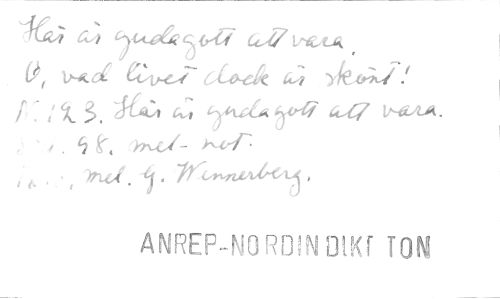 Här är gudagott att vara,
O, vad livet dock är skönt!
N. 123. Här är gudagott att vara.
98. mel-not.
mel. G. Wennerberg.
ANREP-NORDIN DIKT TON